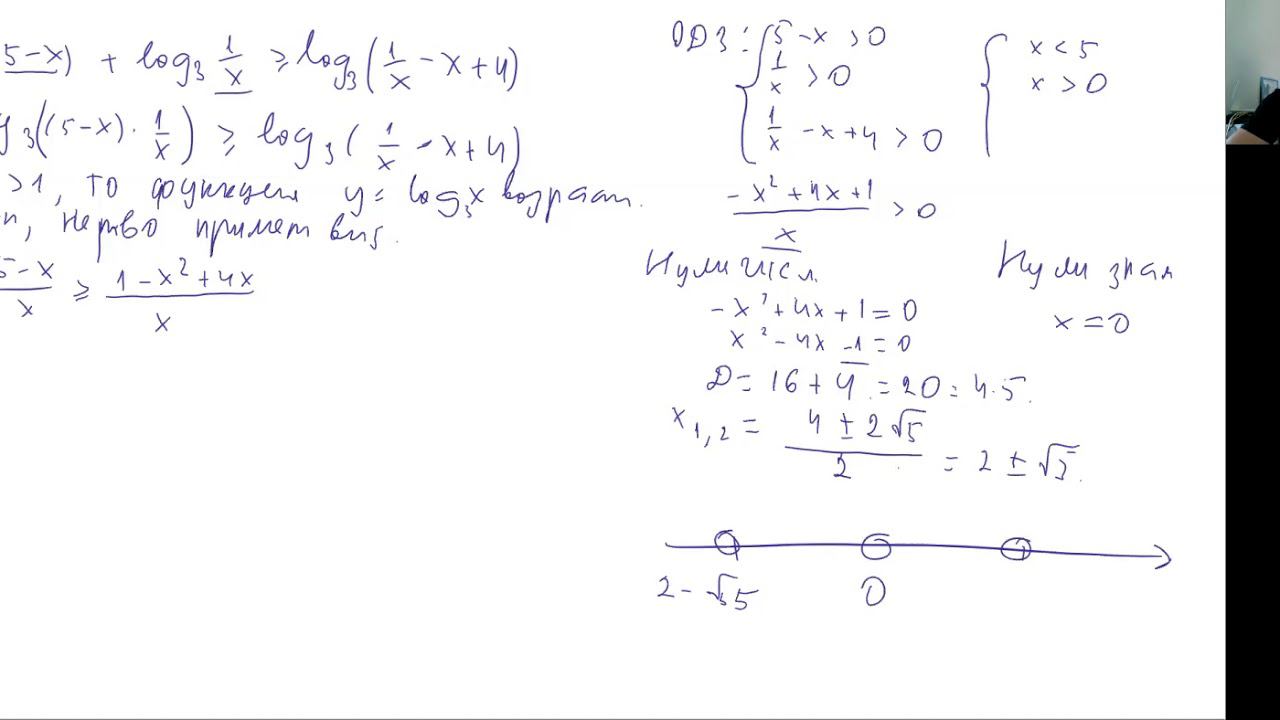 5-x) + log₃ 1/x ≥ log₃(1/x - x + 4)
₃((5-x) · 1/x) ≥ log₃(1/x - x + 4)
>1, то функция y = log₃x возраст.
n, нер-во примет вид.
5-x/x ≥ 1 - x² + 4x/x
ОДЗ: { 5 - x > 0
1/x > 0
1/x - x + 4 > 0
{ x < 5
x > 0
-x² + 4x + 1/x > 0
Нули числ.
-x² + 4x + 1 = 0
x² - 4x - 1 = 0
D = 16 + 4 = 20 = 4·5.
x₁,₂ = 4 ± 2√5/2 = 2 ± √5.
Нули знам
x = 0
2 - √5 0